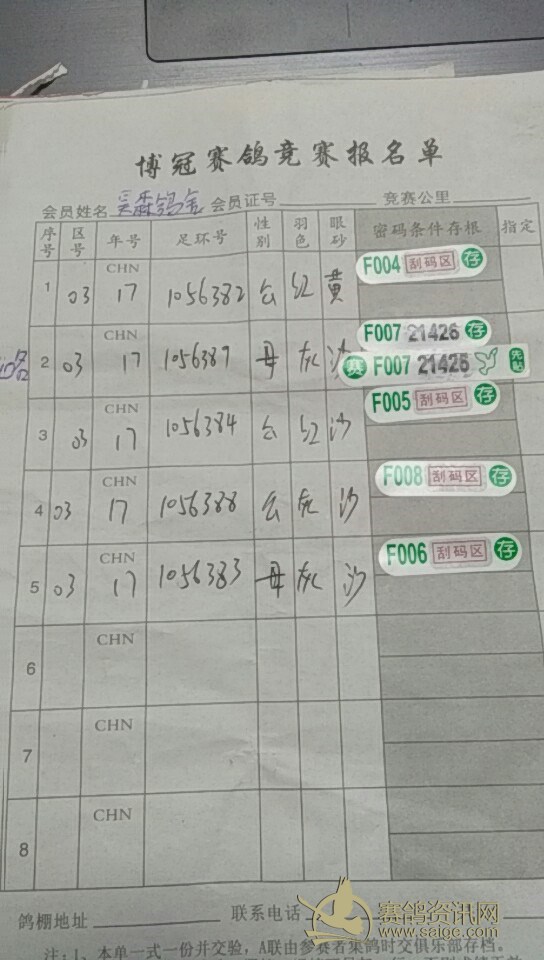 博冠赛鸽竞赛报名单
会员姓名 吴森鸽舍 会员证号 竞赛公里
序号 区号 年号 足环号 性别 羽色 眼砂 密码条件存根 指定
1 03 CHN 17 1056382 公 红 黄 F004 刮码区 存
F007 21426 存
2 03 CHN 17 1056389 母 灰 沙 赛 F007 21426 先贴
3 03 CHN 17 1056384 公 红 沙 F005 刮码区 存
4 03 CHN 17 1056388 公 灰 沙 F008 刮码区 存
5 03 CHN 17 1056383 母 灰 沙 F006 刮码区 存
6 CHN
7 CHN
8 CHN
鸽棚地址 联系电话
赛鸽资讯网
www.saige.com
注:1、本单一式一份并交验,A联由参赛者集鸽时交俱乐部存档。